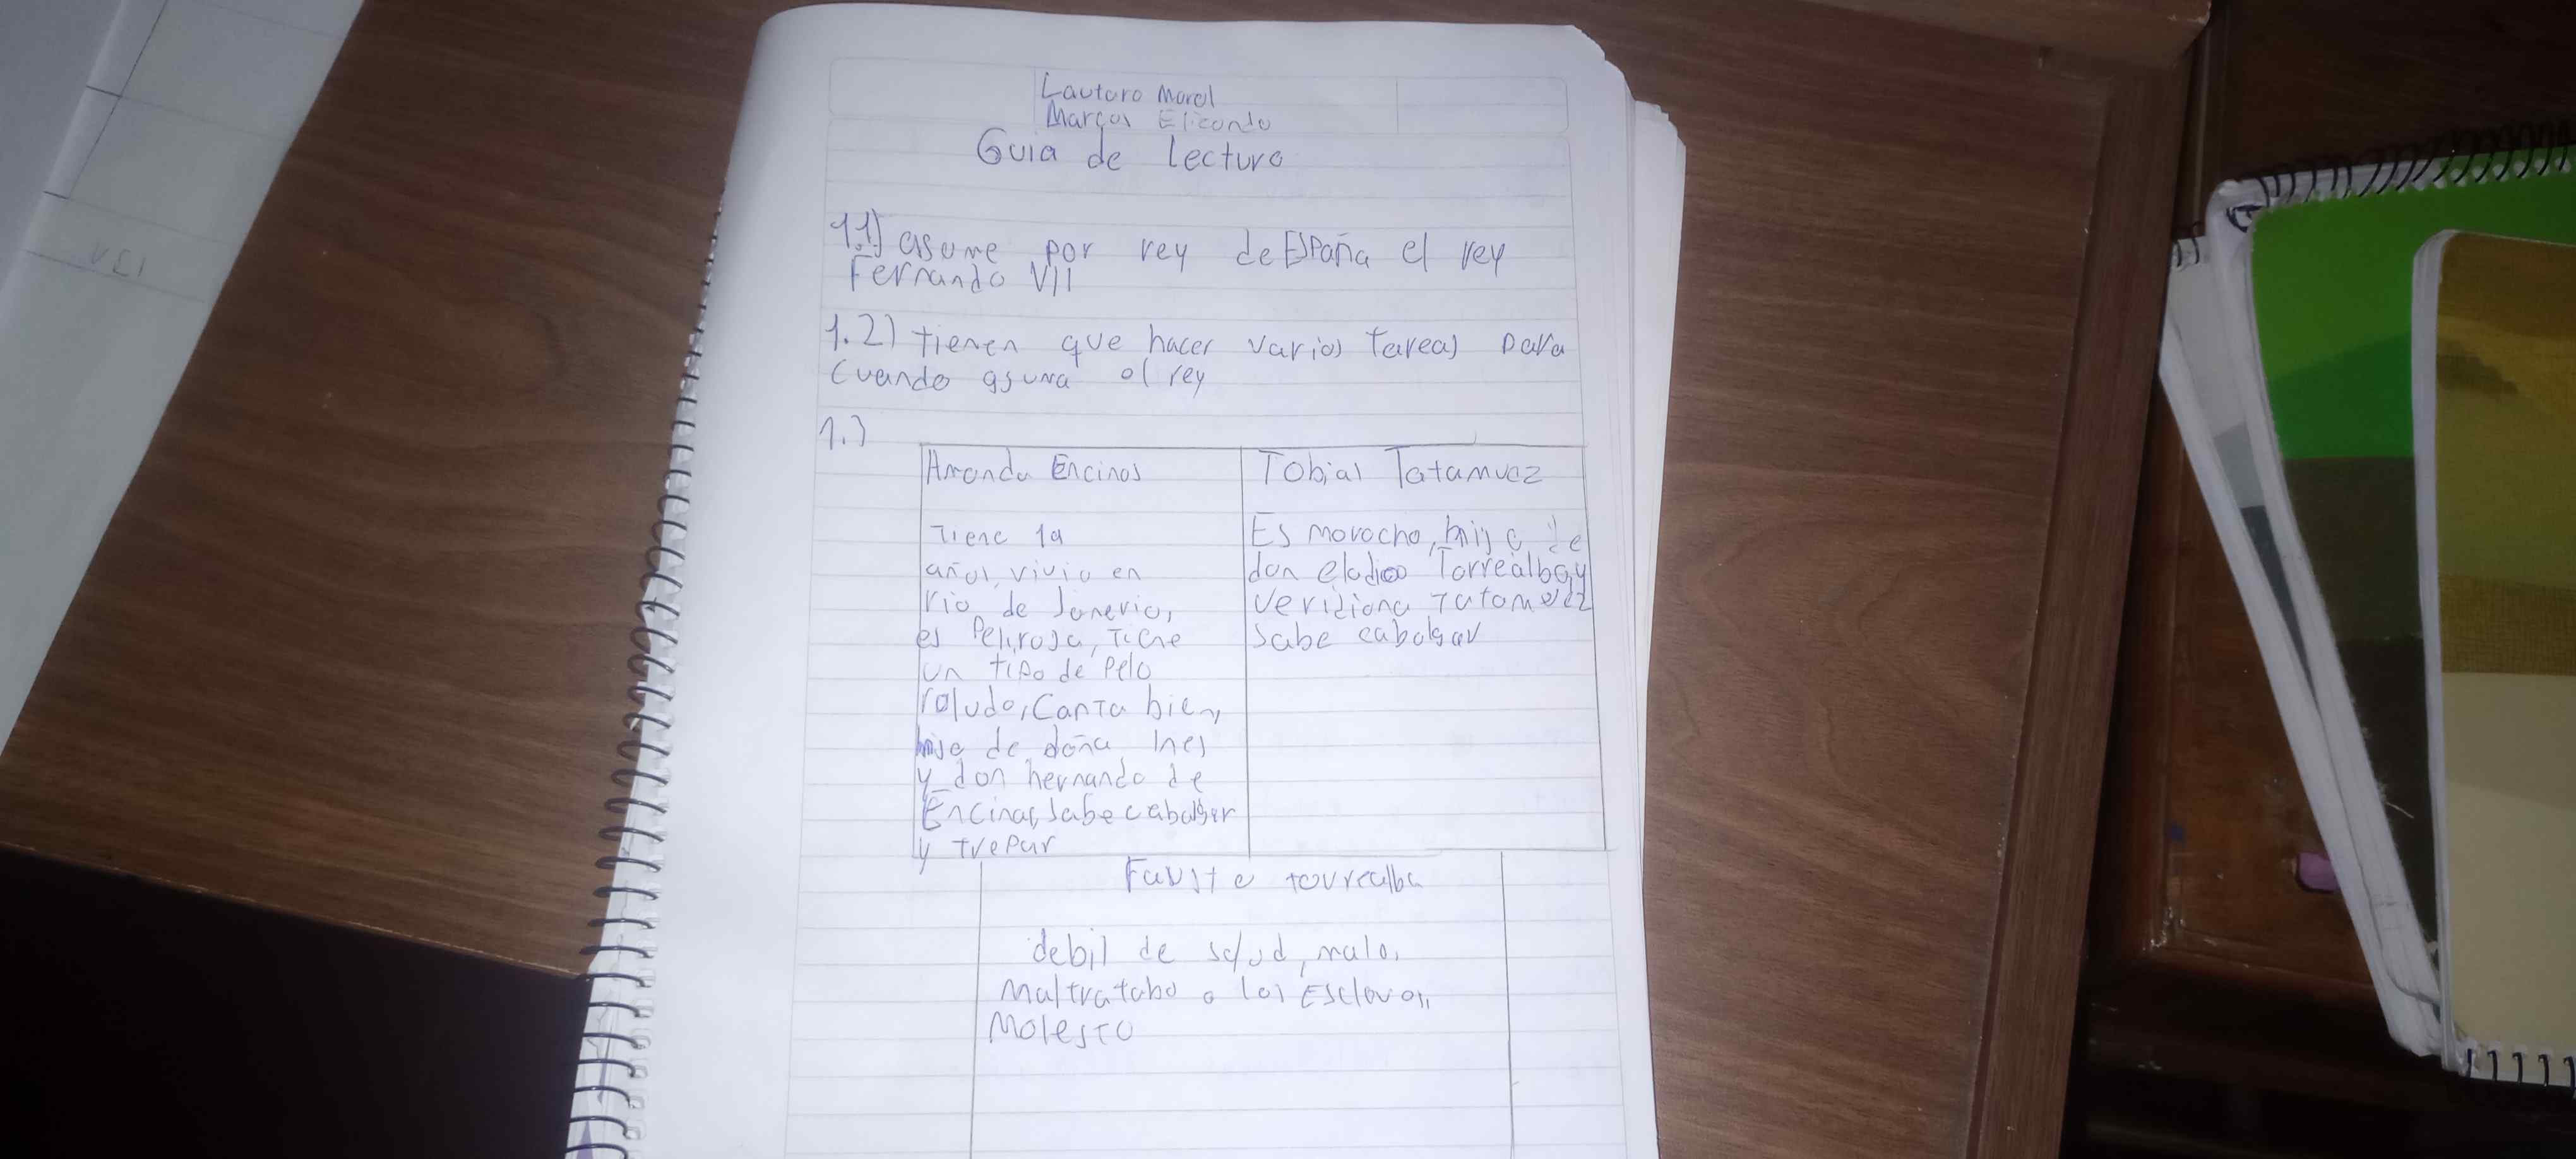 Lautaro Morel
Marcos Elicondo
Guia de lectura
1.1) asume por rey de España el rey
Fernando VII
1.2) tienen que hacer varios tareas para
cuando asuma el rey
1.3
Amanda Encinas
Tiene 19
años, vivio en
rio de Janerio,
es Pelirosa, Tiene
un tipo de pelo
Canta bien,
hija de doña Ines
y don hernando de
Encinas, sabe cabalgar
y trepar
Tobias Tatamuez
Es morocho, hijo de
don eladio Torrealba y
veridiana Tatamuez
sabe cabalgar
Fausto torrealba
debil de salud, malo,
Maltrataba a los Esclavos,
Molesto